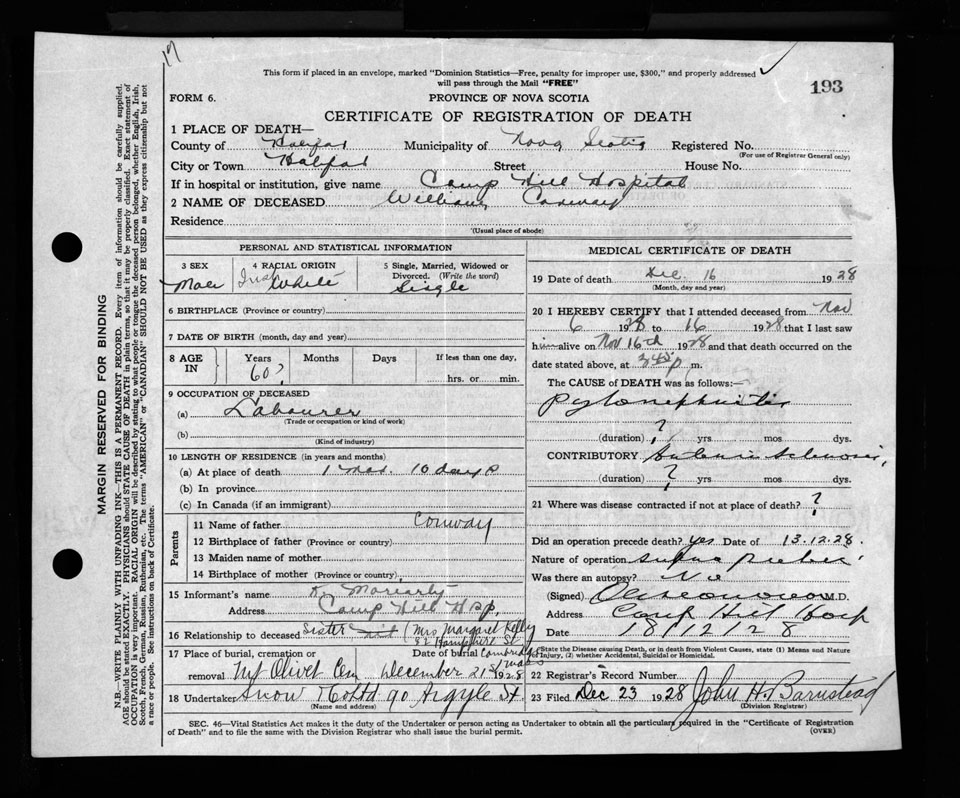 17
This form if placed in an envelope, marked "Dominion Statistics—Free, penalty for improper use, $300," and properly addressed
will pass through the Mail "FREE"
193
FORM 6.
PROVINCE OF NOVA SCOTIA
CERTIFICATE OF REGISTRATION OF DEATH
1 PLACE OF DEATH—
County of Halifax Municipality of Nova Scotia Registered No.
(For use of Registrar General only)
City or Town Halifax Street House No.
If in hospital or institution, give name Camp Hill Hospital
2 NAME OF DECEASED William Conway
Residence
(Usual place of abode)
PERSONAL AND STATISTICAL INFORMATION
3 SEX 4 RACIAL ORIGIN 5 Single, Married, Widowed or
Divorced. (Write the word)
Male Irish White Single
6 BIRTHPLACE (Province or country)
7 DATE OF BIRTH (month, day and year)
8 AGE IN Years Months Days If less than one day,
60? hrs. or min.
9 OCCUPATION OF DECEASED
(a) Labourer
(Trade or occupation or kind of work)
(b)
(Kind of industry)
10 LENGTH OF RESIDENCE (in years and months)
(a) At place of death 1 mos. 10 days
(b) In province
(c) In Canada (if an immigrant)
Parents
11 Name of father Conway
12 Birthplace of father (Province or country)
13 Maiden name of mother
14 Birthplace of mother (Province or country)
15 Informant's name K. Moriarty
Address Camp Hill Hosp.
16 Relationship to deceased Sister (Mrs Margaret Kelly
82 Hampshire St
17 Place of burial, cremation or Date of burial Cambridge
Mass
removal Mt Olivet Cem December 21st 1928
18 Undertaker Snow & Co Ltd 90 Argyle St.
(Name and address)
MEDICAL CERTIFICATE OF DEATH
19 Date of death Dec. 16 1928
(Month, day and year)
20 I HEREBY CERTIFY that I attended deceased from Nov
6 1928 to 16 1928 that I last saw
him alive on Nov 16th 1928 and that death occurred on the
date stated above, at 345 p m.
The CAUSE of DEATH was as follows:—
Pyelonephritis
(duration) ? yrs mos dys.
CONTRIBUTORY
(duration) ? yrs. mos. dys.
21 Where was disease contracted if not at place of death? ?
Did an operation precede death? yes Date of 13.12.28.
Nature of operation
Was there an autopsy? No
(Signed) M.D.
Address Camp Hill Hosp
Date 18/12/28
*State the Disease causing Death, or in death from Violent Causes, state (1) Means and Nature
of Injury, (2) whether Accidental, Suicidal or Homicidal.
22 Registrar's Record Number
23 Filed Dec 23 1928 John H. Barnstead
(Division Registrar)
SEC. 46—Vital Statistics Act makes it the duty of the Undertaker or person acting as Undertaker to obtain all the particulars required in the "Certificate of Registration
of Death" and to file the same with the Division Registrar who shall issue the burial permit.
(OVER)
MARGIN RESERVED FOR BINDING
N.B.—WRITE PLAINLY WITH UNFADING INK—THIS IS A PERMANENT RECORD. Every item of information should be carefully supplied.
AGE should be stated EXACTLY. PHYSICIANS should STATE CAUSE OF DEATH in plain terms, so that it may be properly classified. Exact statement of
OCCUPATION is very important. RACIAL ORIGIN will be described by stating to what people or tongue the deceased person belonged, whether English, Irish,
Scotch, French, German, Russian, Ruthenian, etc. The terms "AMERICAN" or "CANADIAN" SHOULD NOT BE USED as they express citizenship but not
a race or people. See instructions on back of Certificate.